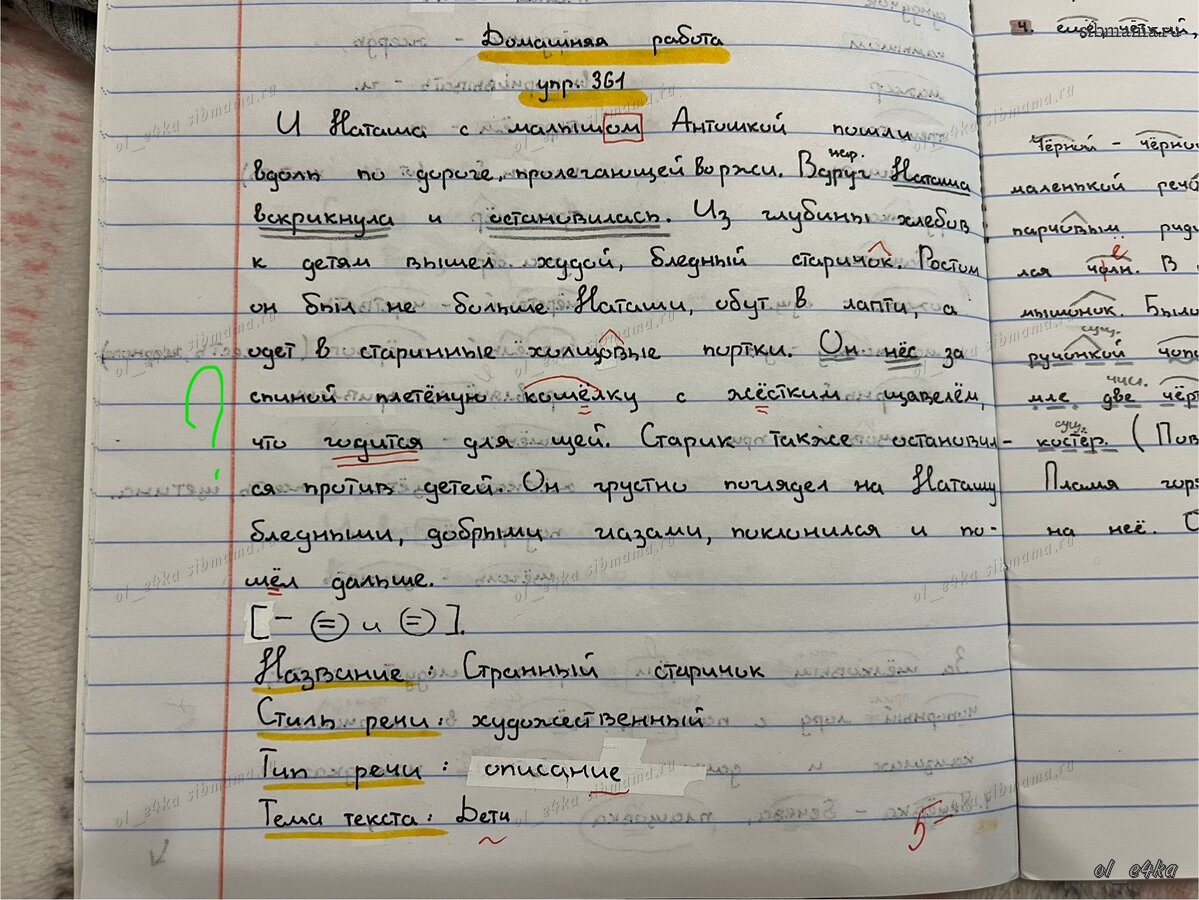 Домашняя работа
упр. 361
И Наташа с малышом Антошкой пошли
вдоль по дороге, пролегающей во ржи. Вдруг нар. Наташа
вскрикнула и остановилась. Из глубины хлебов
к детям вышел худой, бледный старичок. Ростом
он был не больше Наташи, обут в лапти, а
одет в старинные холщовые портки. Он нёс за
спиной плетёную кошёлку с жёстким щавелём,
что годится для щей. Старик также остановил-
ся против детей. Он грустно поглядел на Наташу
бледными, добрыми глазами, поклонился и по-
шёл дальше.
[– = и = ].
Название : Странный старичок
Стиль речи : художественный
Тип речи : описание
Тема текста : Дети
5-
?
4. ещё, чёткий,
Чёрной - чёрно
маленькой реч
парчовым
лся чёлн. В
мышонок. Было
сущ.
ручонкой
числ.
мле две чёр
сущ.
костёр. ( Пов
Пламя гор
на неё. С
sibmama.ru
ol_e4ka